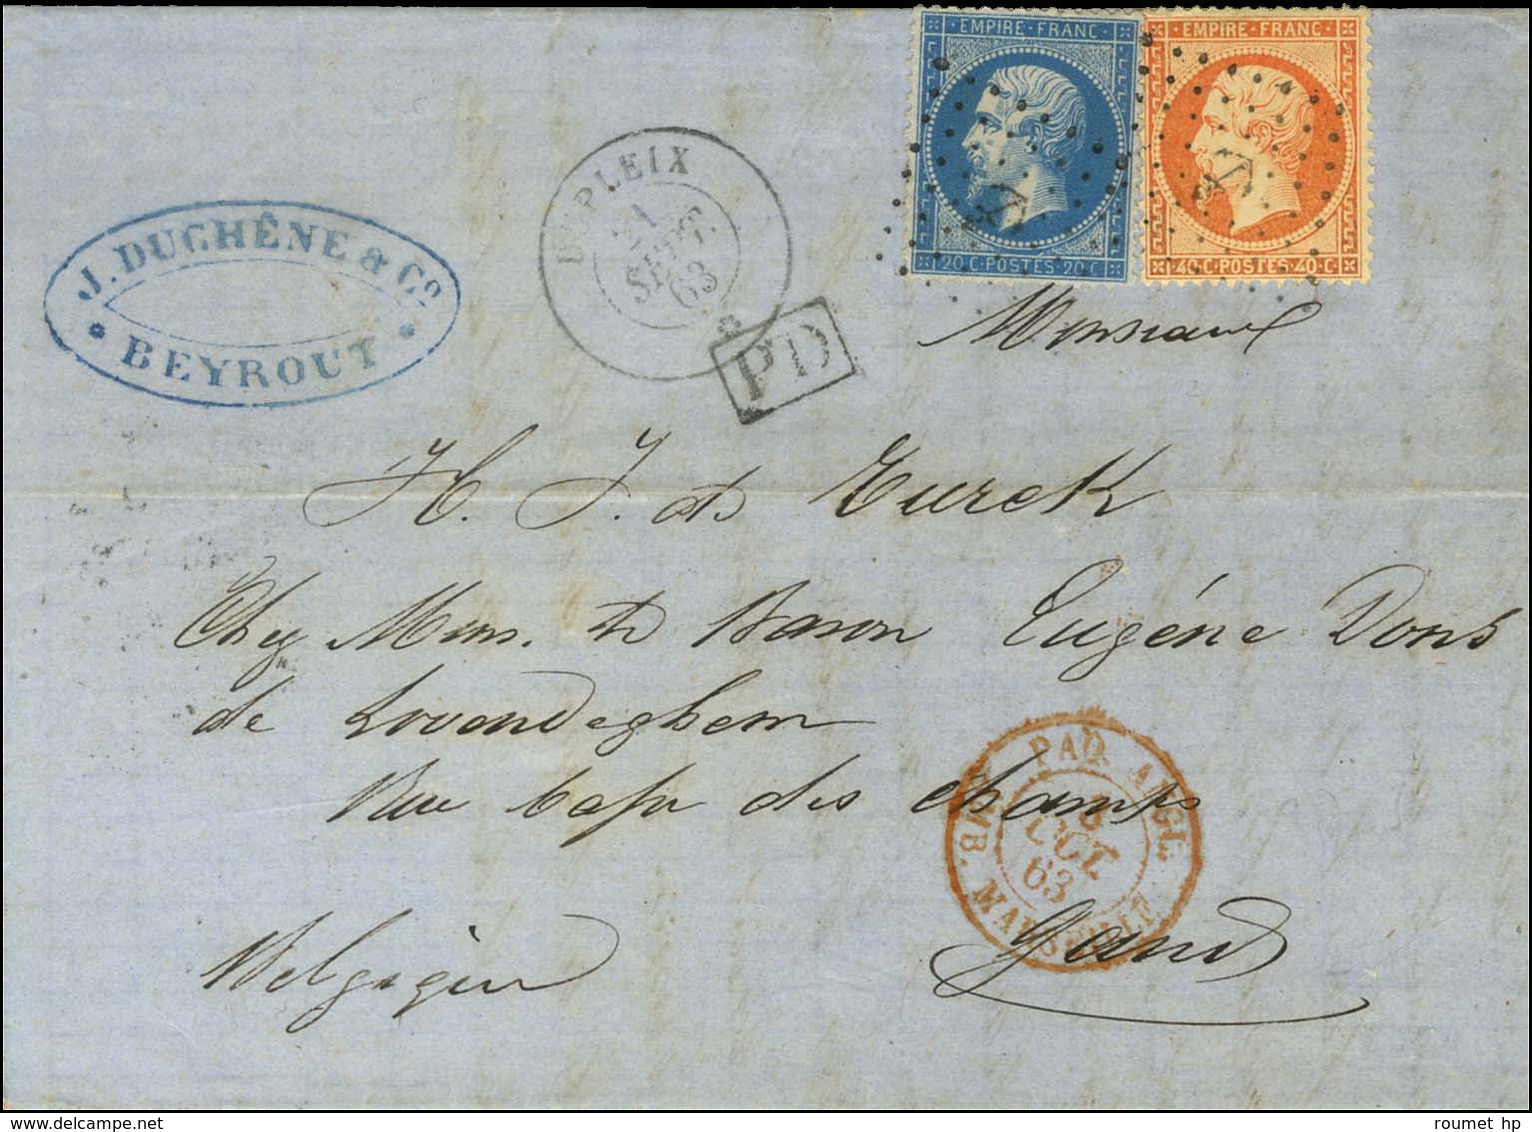 EMPIRE · FRANC
20 C · POSTES · 20 C
EMPIRE · FRANC
40 · C · POSTES · 40 · C
J. DUCHÊNE & Co
BEYROUT
DUPLEIX
21
SEPT.
63
PD
Monsieur
H. J. de Turck
Chez Mons. le Baron Eugène Dons
de Lovendeghem
Rue basse des champs
PAQ. ANGL.
OCT.
63
AMB. MARSEILLE
Gand
Belgique
roumet hp